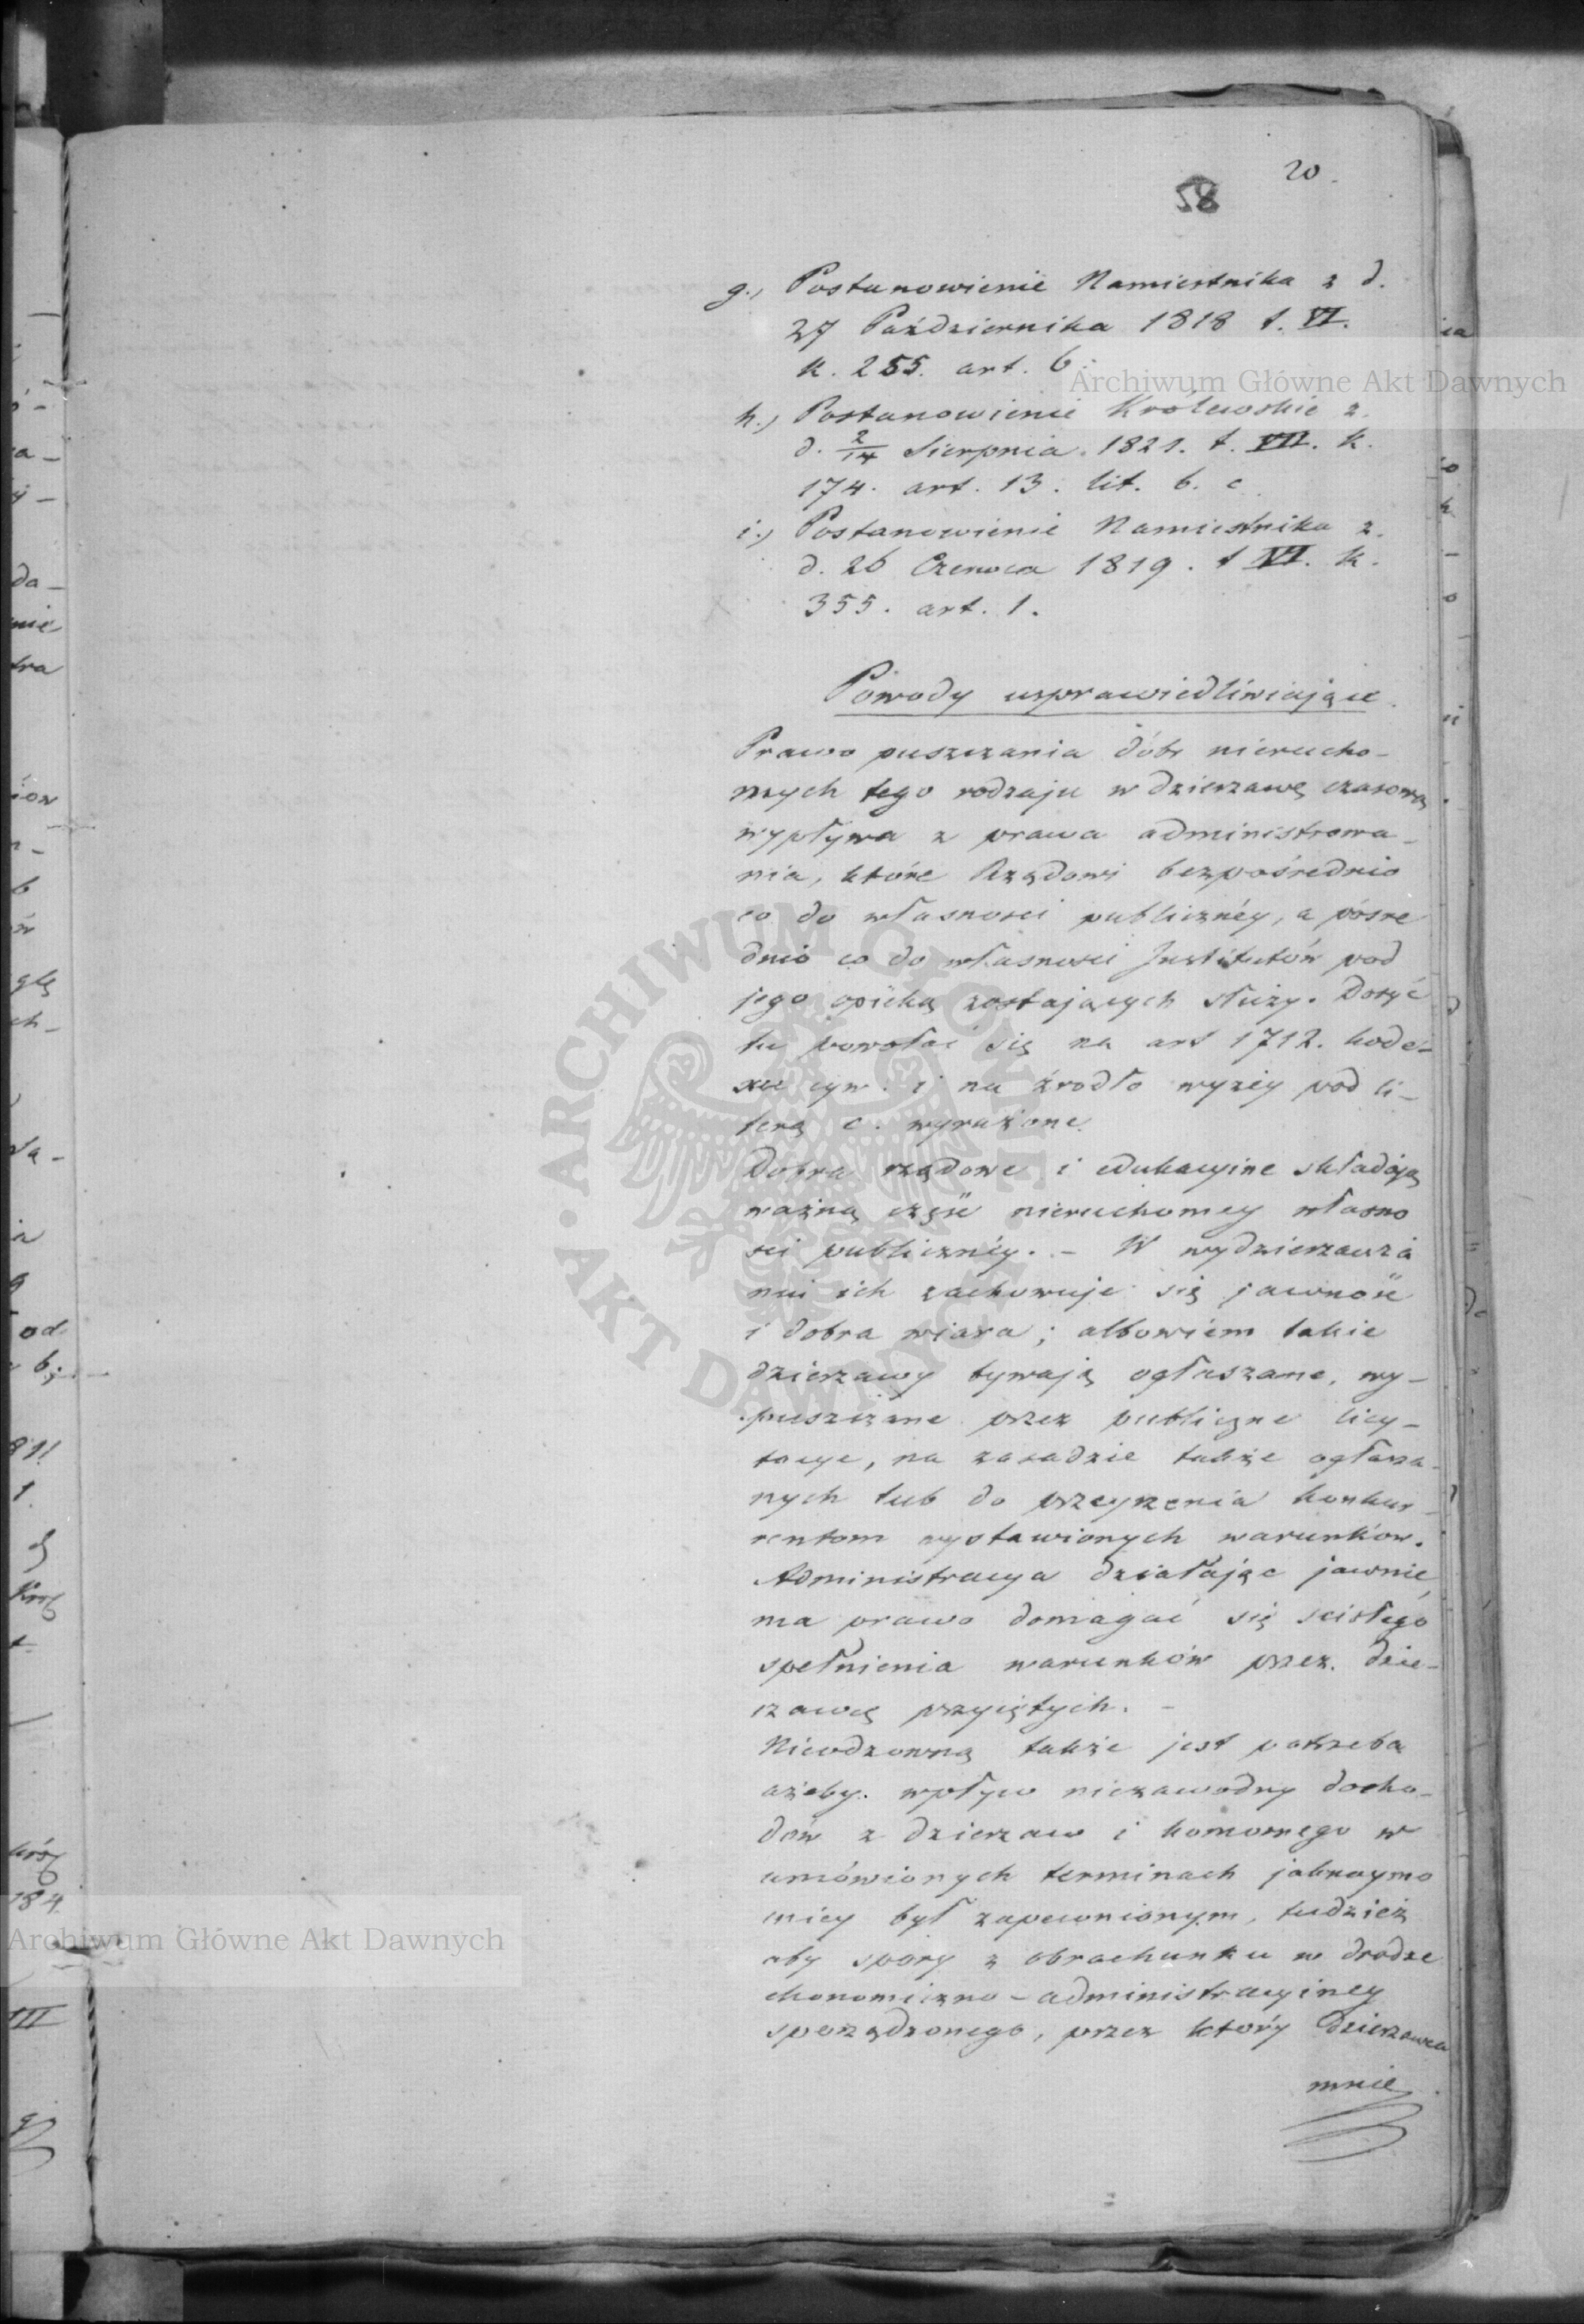 20.
82
g., Postanowienie Namiestnika z d.
27 Października 1818 t. VI.
k. 255. art. 6.
Archiwum Główne Akt Dawnych
h., Postanowienie Królewskie z.
d. 2/14 Sierpnia. 1821. t. VII. k.
174. art. 13. lit. b. c
i., Postanowienie Namiestnika z.
d. 26 Czerwca 1819. t VI. k.
355. art. 1.
Powody usprawiedliwiające.
Prawo puszczania dóbr nierucho-
mych tego rodzaju w dzierzawę czasową
wypływa z prawa administrowa-
nia, które Rządowi bezpośrednio
co do własnosci publicznéy, a pośre
dnio co do własnosci Institutów pod
jego opieką zostających służy. Dosyć
tu powołać się na art 1712. kode-
xu cyw. i na źrodło wyżéy pod li-
terą c. wyrażone.
Dobra rządowe i edukacyine składają
ważną część nieruchomey własno
sci publicznéy. - W wydzierzawia
niu ich zachowuje się jawność
i dobra wiara; albowiem takie
dzierzawy bywają ogłaszane, wy-
puszczane przez publiczne licy-
tacye, na zasadzie także ogłasza-
nych lub do przeyrzenia konkur-
rentom wystawionych warunków.
Administracya działając jawnie,
ma prawo domagać się scisłego
spełnienia warunków przez. dzie-
rzawcę przyiętych. -
Nieodzowną także jest potrzeba
ażeby. wpływ niezawodny docho-
dów z dzierzaw i komornego w
umówionych terminach jaknaymo
cniey był zapewnionym, tudzież
aby spory z obrachunku w drodze
ekonomiczno-administracyiney
sporządzonego, przez który Dzierzawca
mnie
ARCHIWUM GŁÓWNE · AKT DAWNYCH ·
Archiwum Główne Akt Dawnych